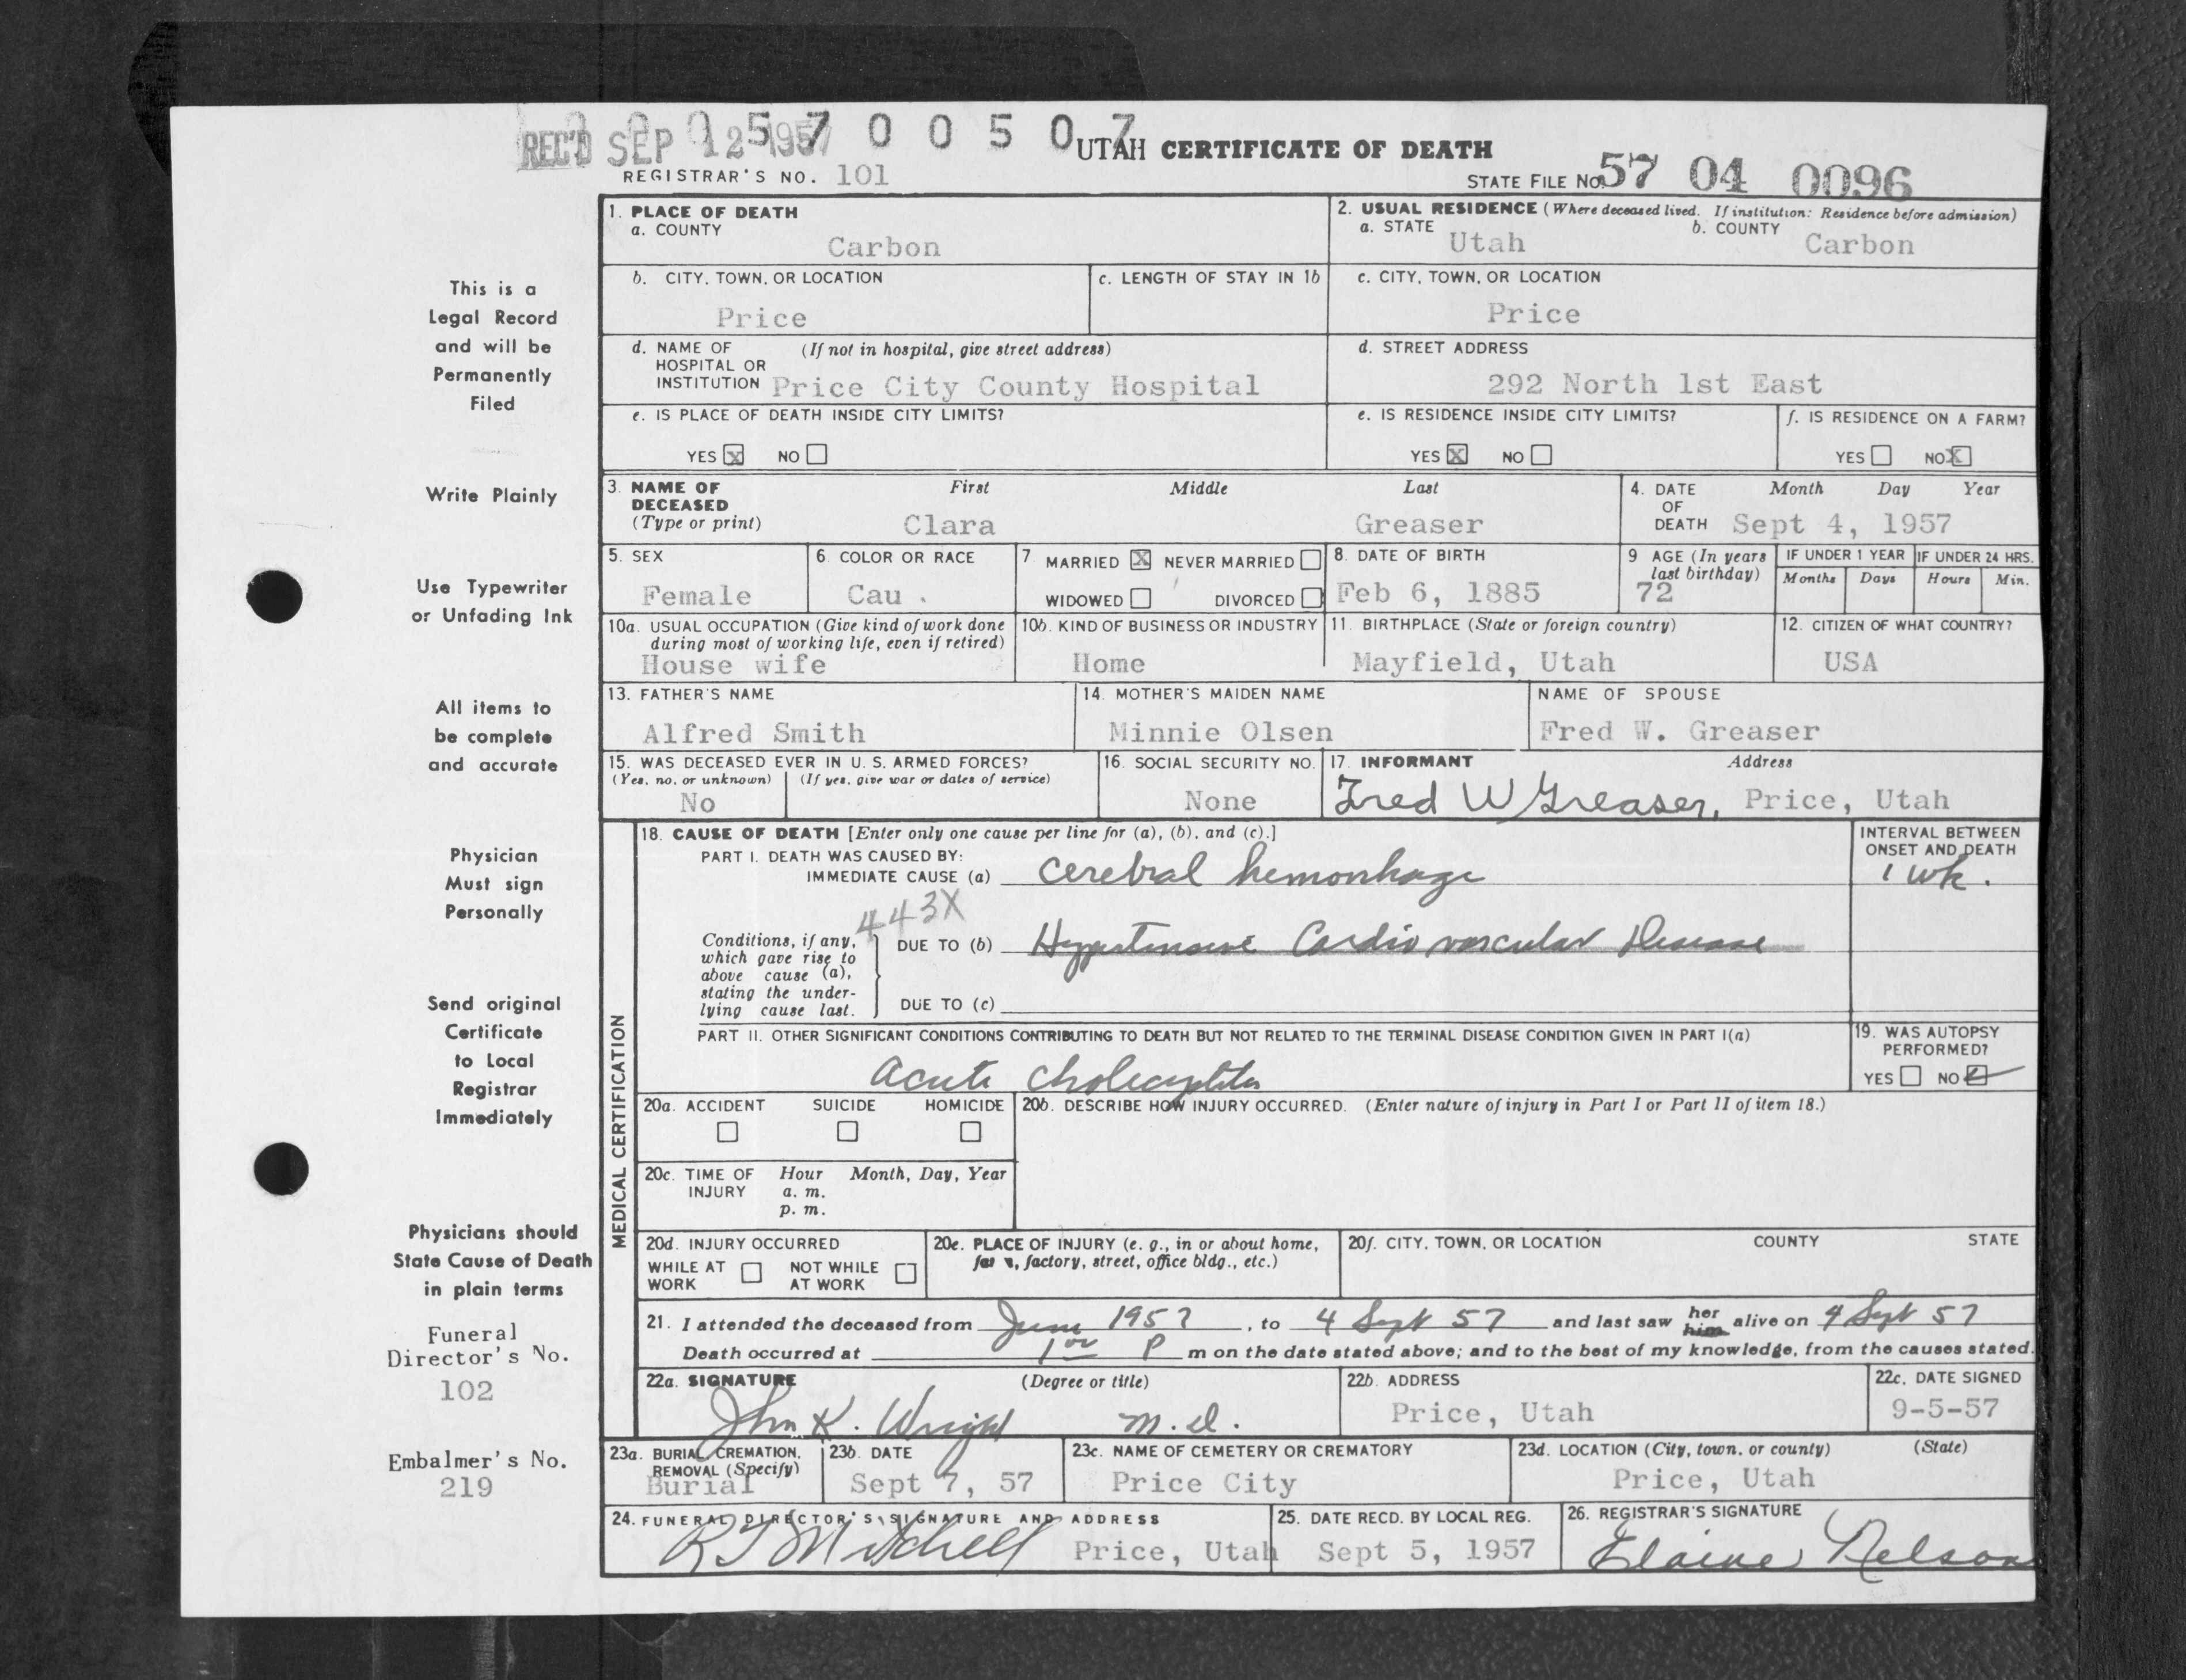 REC'D SEP 12 1957
5 7 0 0 5 0 7
UTAH CERTIFICATE OF DEATH
REGISTRAR'S NO. 101
STATE FILE NO. 57 04 0096
This is a
Legal Record
and will be
Permanently
Filed
Write Plainly
Use Typewriter
or Unfading Ink
All items to
be complete
and accurate
Physician
Must sign
Personally
Send original
Certificate
to Local
Registrar
Immediately
Physicians should
State Cause of Death
in plain terms
Funeral
Director's No.
102
Embalmer's No.
219
1. PLACE OF DEATH
a. COUNTY
Carbon
2. USUAL RESIDENCE (Where deceased lived. If institution: Residence before admission)
a. STATE Utah b. COUNTY Carbon
b. CITY, TOWN, OR LOCATION
Price
c. LENGTH OF STAY IN 1b
c. CITY, TOWN, OR LOCATION
Price
d. NAME OF (If not in hospital, give street address)
HOSPITAL OR
INSTITUTION Price City County Hospital
d. STREET ADDRESS
292 North 1st East
e. IS PLACE OF DEATH INSIDE CITY LIMITS?
YES X NO
e. IS RESIDENCE INSIDE CITY LIMITS?
YES X NO
f. IS RESIDENCE ON A FARM?
YES NO X
3. NAME OF DECEASED (Type or print)
First Middle Last
Clara Greaser
4. DATE OF DEATH Month Day Year
Sept 4, 1957
5. SEX
Female
6. COLOR OR RACE
Cau .
7 MARRIED X NEVER MARRIED
WIDOWED DIVORCED
8. DATE OF BIRTH
Feb 6, 1885
9 AGE (In years last birthday)
72
IF UNDER 1 YEAR
Months Days
IF UNDER 24 HRS.
Hours Min.
10a. USUAL OCCUPATION (Give kind of work done
during most of working life, even if retired)
House wife
10b. KIND OF BUSINESS OR INDUSTRY
Home
11. BIRTHPLACE (State or foreign country)
Mayfield, Utah
12. CITIZEN OF WHAT COUNTRY?
USA
13. FATHER'S NAME
Alfred Smith
14. MOTHER'S MAIDEN NAME
Minnie Olsen
NAME OF SPOUSE
Fred W. Greaser
15. WAS DECEASED EVER IN U. S. ARMED FORCES?
(Yes, no, or unknown) (If yes, give war or dates of service)
No
16. SOCIAL SECURITY NO.
None
17. INFORMANT Address
Fred W Greaser, Price, Utah
MEDICAL CERTIFICATION
18. CAUSE OF DEATH [Enter only one cause per line for (a), (b), and (c).]
PART I. DEATH WAS CAUSED BY:
IMMEDIATE CAUSE (a) Cerebral hemorrhage
INTERVAL BETWEEN
ONSET AND DEATH
1 wk.
443X
Conditions, if any,
which gave rise to
above cause (a),
stating the under-
lying cause last.
DUE TO (b) Hypertensive Cardio vascular Disease
DUE TO (c)
PART II. OTHER SIGNIFICANT CONDITIONS CONTRIBUTING TO DEATH BUT NOT RELATED TO THE TERMINAL DISEASE CONDITION GIVEN IN PART I(a)
Acute cholecystitis
19. WAS AUTOPSY
PERFORMED?
YES NO
20a. ACCIDENT SUICIDE HOMICIDE
20b. DESCRIBE HOW INJURY OCCURRED. (Enter nature of injury in Part I or Part II of item 18.)
20c. TIME OF INJURY Hour Month, Day, Year
a. m.
p. m.
20d. INJURY OCCURRED
WHILE AT WORK NOT WHILE AT WORK
20e. PLACE OF INJURY (e. g., in or about home,
farm, factory, street, office bldg., etc.)
20f. CITY, TOWN, OR LOCATION COUNTY STATE
21. I attended the deceased from June 1957, to 4 Sept 57 and last saw her him alive on 4 Sept 57
Death occurred at 1 00 P m on the date stated above; and to the best of my knowledge, from the causes stated.
22a. SIGNATURE (Degree or title)
John K. Wright M.D.
22b. ADDRESS
Price, Utah
22c. DATE SIGNED
9-5-57
23a. BURIAL, CREMATION,
REMOVAL (Specify)
Burial
23b. DATE
Sept 7, 57
23c. NAME OF CEMETERY OR CREMATORY
Price City
23d. LOCATION (City, town, or county) (State)
Price, Utah
24. FUNERAL DIRECTOR'S SIGNATURE AND ADDRESS
R J Mitchell Price, Utah
25. DATE RECD. BY LOCAL REG.
Sept 5, 1957
26. REGISTRAR'S SIGNATURE
Elaine Nelson